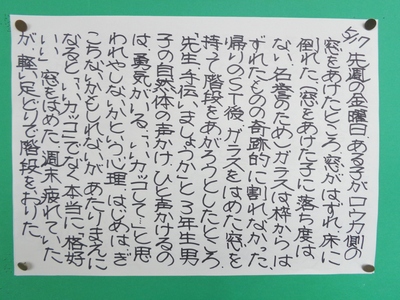 5/17 先週の金曜日、ある子がロウカ側の
窓をあけたところ、窓がはずれ、床に
倒れた。(窓をあけた子に落ち度は
ない、名誉のため)ガラスは枠からは
ずれたものの奇跡的に割れなかった。
帰りのST後、ガラスをはめた窓を
持って階段をあがろうとしたところ、
「先生、手伝いましょうか」と3年生男
子の自然体の声かけ。ひと声かけるの
は、勇気がいる。「いいカッコして〜」と思
われやしないかという心理。はじめはぎ
こちないかもしれないが、あたりまえに
なると「いいカッコ」でなく本当に「格好
いい」。窓をはめた。週末、疲れていた
が、軽い足どりで階段をおりた。